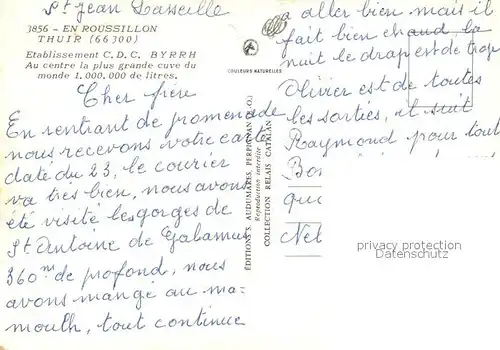 St Jean Lasseille
3856 - EN ROUSSILLON
THUIR (66300)
Etablissement C. D. C. BYRRH
Au centre la plus grande cuve du
monde 1.000.000 de litres.
Cher frère
En rentrant de promenade
nous recevons votre carte
date du 23, le courier
va très bien, nous avons
été visité les gorges de
St Antoine de Galamus
360m de profond, nous
avons mangé au ma-
mouth, tout continue
COULEURS NATURELLES
EDITIONS S. AUDUMARES, PERPIGNAN (P.-O.)
Reproduction interdite
COLLECTION RELAIS CATALAN
a aller bien mais il
fait bien chaud, la
nuit le drap est de trop
Olivier est de toutes
les sorties, il suit
Raymond pour tout
Bon
qu
Nel
privacy protection
Datenschutz